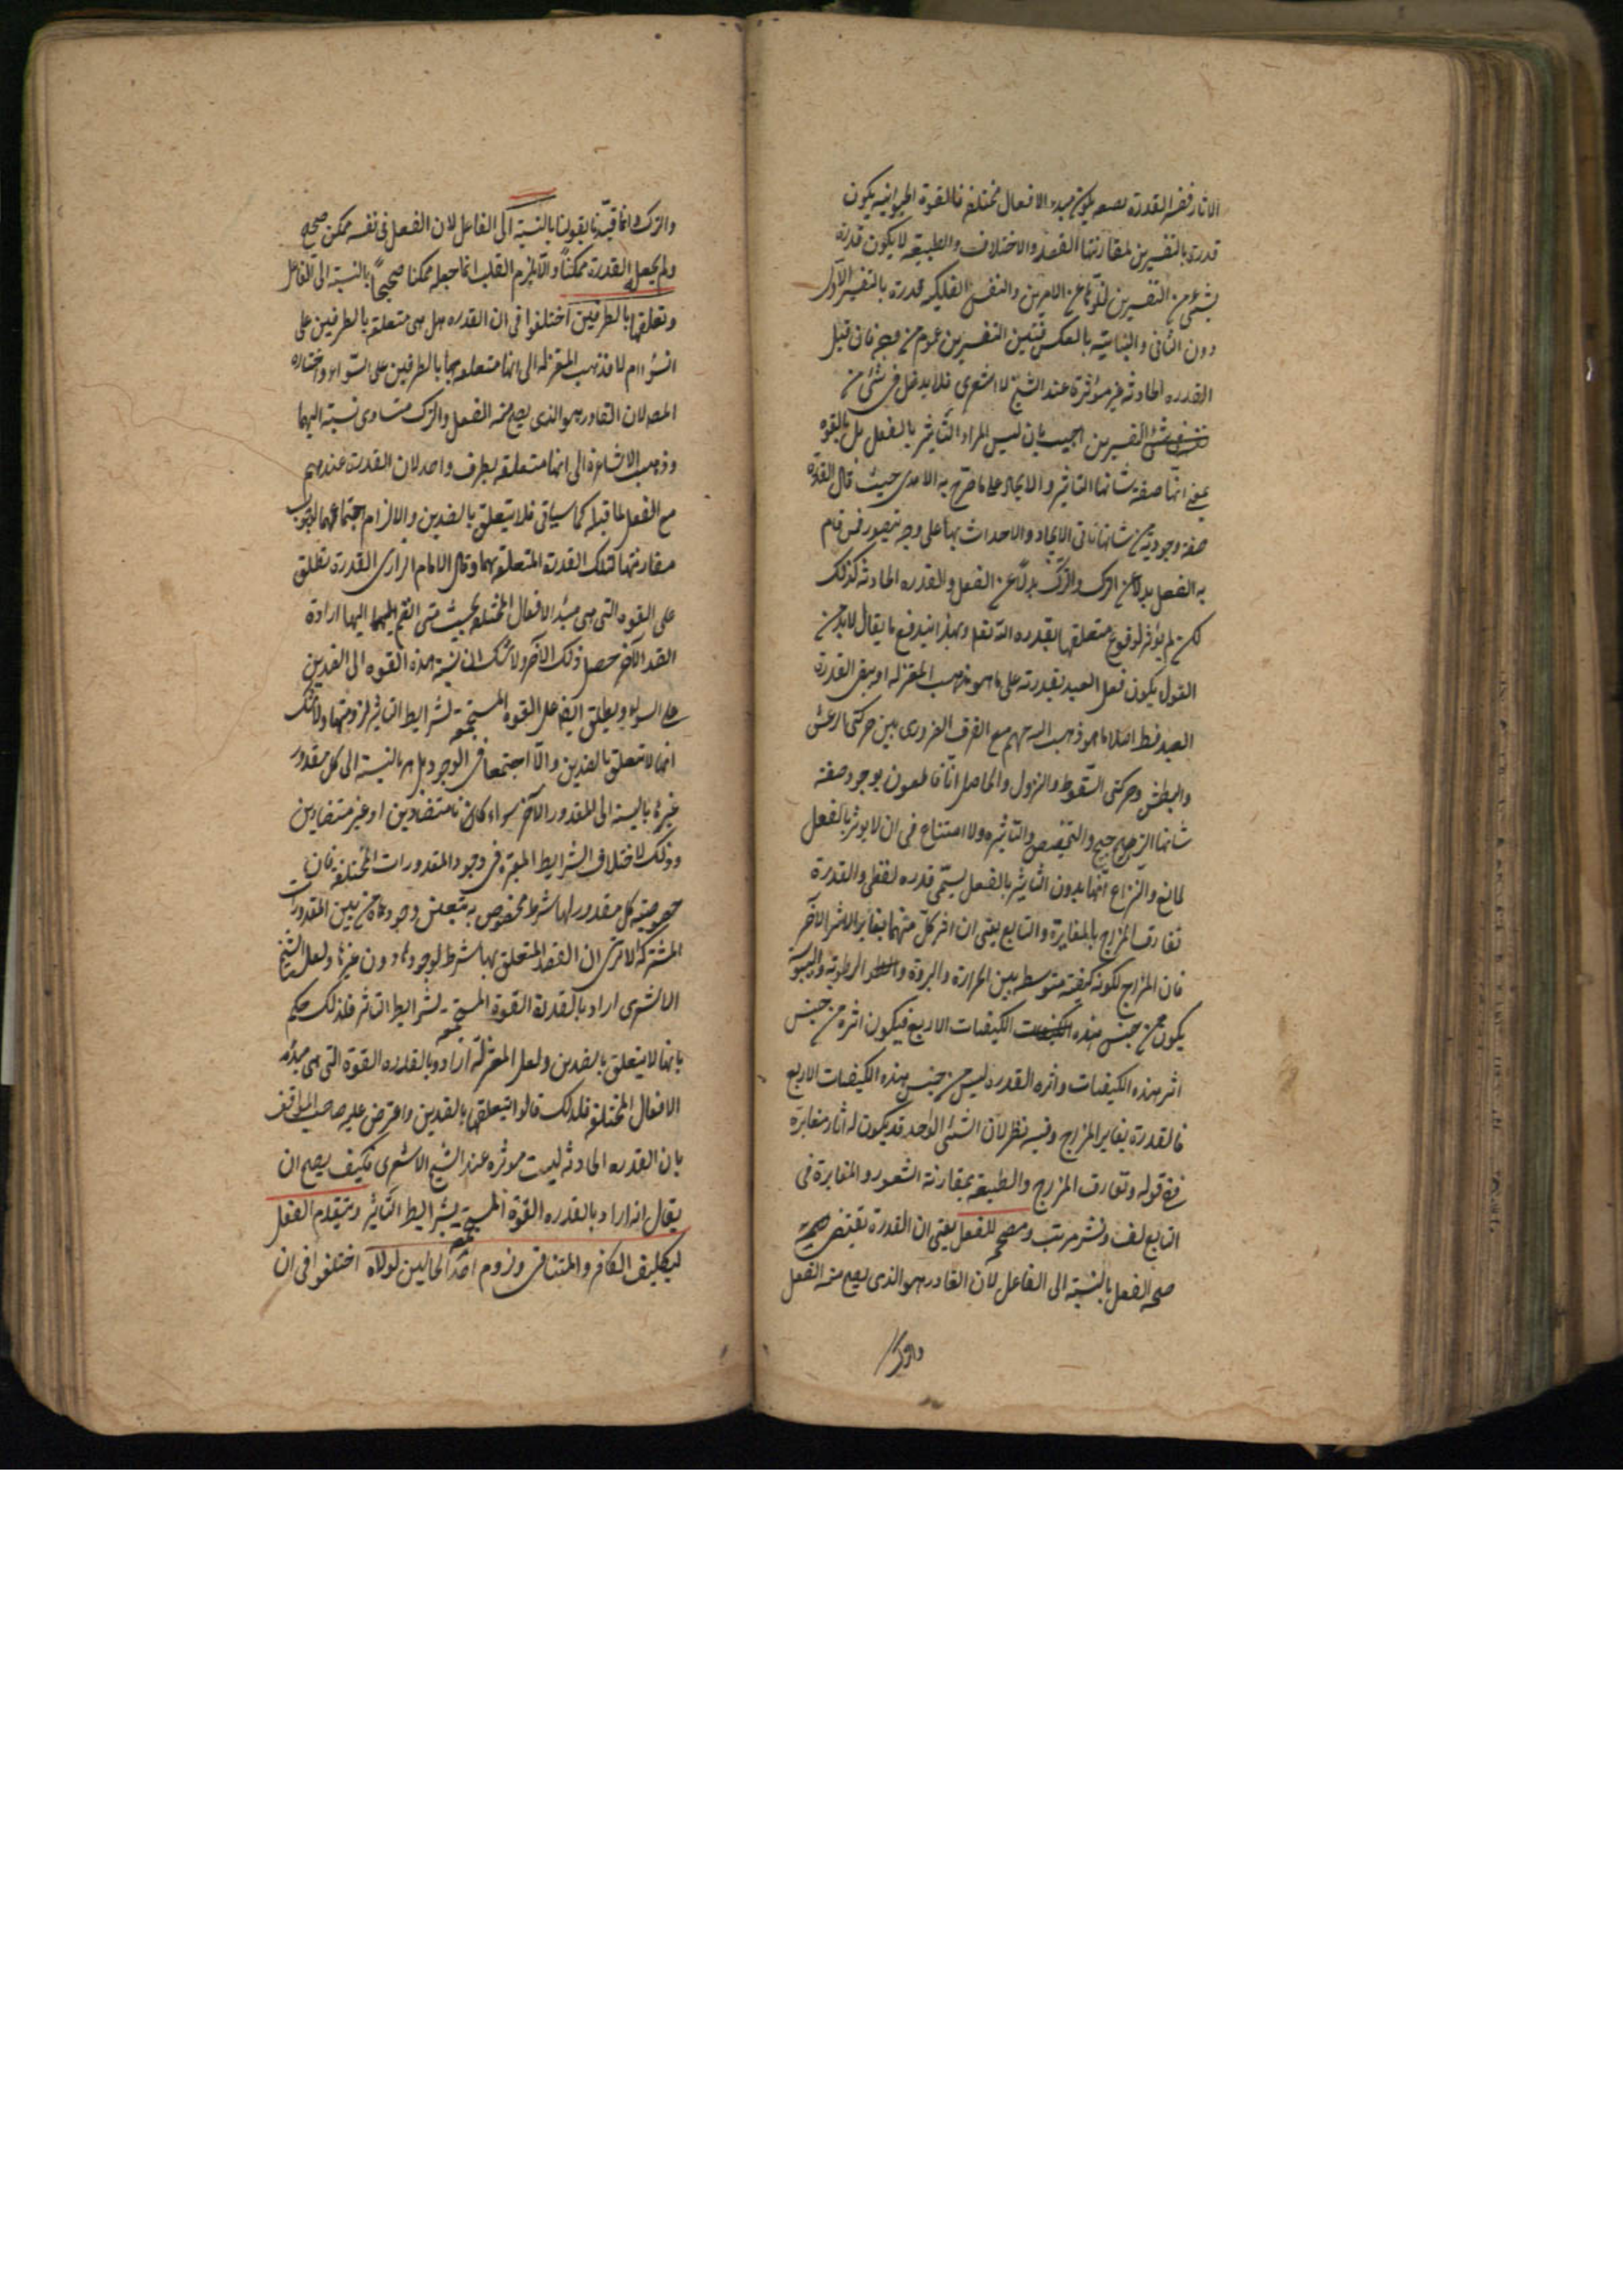 الاثار ففسر القدرة بصفة يكون مبدء الافعال مختلفة فالقوة الحيوانية يكون
قدرة بالتفسيرين لمقارنتها القصد والاختلاف والطبيعة لا يكون قدرة
بشئ من التفسيرين لخلوها عن الامرين والنفس الفلكية قدرة بالتفسير الاول
دون الثانى والنباتية بالعكس فبين التفسيرين عموم من وجه فان قيل
القدره الحادثه غير مؤثرة عند الشيخ الاشعرى فلا يدخل فى شئ من
التفسيرين اجيب بان ليس المراد التأثير بالفعل بل بالقوة
بمعنى انها صفة شانها التاثير والايجاد على ما صرح به الامدى حيث قال القدرة
صفة وجودية من شانها تاتى الايجاد والاحداث بها على وجه يتصور ممن قام
به الفعل بدلا عن الترك والترك بدلا عن الفعل والقدره الحادثه كذلك
لكن لم يؤثر لوقوع متعلقها بقدره الله تعا وبهذا يندفع ما يقال لابد من
القول بكون فعل العبد بقدرته على ما هو مذهب المعتزله او بنفى القدرة
العبد اصلا ما هو ذهب اليه جهم مع الفرق الضرورى بين حركتى الرعش
والبطش وحركتى السقوط والنزول والحاصل انا قاطعون بوجود صفة
شانها الترجيح والتخصيص والتاثير ولا امتناع فى ان لا يوثر بالفعل
لمانع والنزاع انها بدون التاثير بالفعل يسمى قدره لفظى والقدرة
تفارق المزاج بالمغايرة والتابع يعنى ان اثر كل منهما يغاير الاثر الآخر
فان المزاج لكونه كيفية متوسطه بين الحرارة والبرودة والرطوبة واليبوسة
يكون من جنس هذه الكيفيات الاربع فيكون اثره من جنس
اثر هذه الكيفيات واثره القدرة ليس من جنس هذه الكيفيات الاربع
فالقدرة يغاير المزاج وفيه نظر لان الشئى الواحد قد يكون له اثار متغايرة
ففى قوله وتفارق المزاج والطبيعة بمقارنة الشعور والمغايرة فى
التابع لف ونشر مرتب ومصحح للفعل يعنى ان القدرة تقتضى
صحه الفعل بالنسبة الى الفاعل لان القادر هو الذى يصح منه الفعل
والترك
والترك وانما قيدنا بقولنا بالنسبة الى الفاعل لان الفعل فى نفسه ممكن صحيح
ولم يجعل القدرة ممكنا والا لزم القلب انما جعله ممكنا صحيحا بالنسبة الى الفاعل
وتعلقها بالطرفين اختلفوا فى ان القدره هل هى متعلقة بالطرفين على
السواء ام لا فذهب المعتزله الى انها متعلقة بالطرفين على السواء واختاره
المصه لان القادر هو الذى يصح منه الفعل والترك متساوى نسبة اليهما
وذهب الاشاعرة الى انها متعلقة بطرف واحد لان القدرة عندهم
مع الفعل لا قبله كما سياتى فلا يتعلق بالضدين والا لزم اجتماعهما لوجوب
مقارنتها لتلك القدرة المتعلقة بهما وقال الامام الرازى القدرة تطلق
على القوه التى هى مبدء الافعال المختلفة بحيث متى انضم اليها ارادة
الضد الآخر حصل ذلك الآخر ولا شك ان نسبة هذه القوه الى الضدين
على السواء ويطلق ايضا على القوه المستجمعة لشرايط التاثير لزومتها ولا شك
انها لا تتعلق بالضدين والا اجتمعا فى الوجود بل هى بالنسبة الى كل مقدور
غيرها بالنسبة الى المقدور الآخر سواء كانا متضادين او غير متضادين
وذلك لاختلاف الشرايط المعتبرة فى وجود المقدورات المختلفة فان
خصوصية كل مقدور لها شرط مخصوص به يتعين وجودها من بين المقدورات
المشتركة الا ترى ان القصد المتعلق بها شرط لوجودها دون غيرها ولعل الشيخ
الاشعرى اراد بالقدرة القوة المستجمعة لشرايط التاثير فلذلك حكم
بانها لا يتعلق بالضدين ولعل المعتزلة ارادوا بالقدره القوة التى هى مبدء
الافعال المختلفة فلذلك قالوا بتعلقها بالضدين واعترض عليه صاحب المواقف
بان القدره الحادثه ليست موثره عند الشيخ الاشعرى فكيف يصح ان
يقال انه اراد بالقدره القوة المستجمعة بشرايط التاثير وتتقدم الفعل
لتكليف الكافر والتنافى ولزوم احد المحالين لولاه اختلفوا فى ان